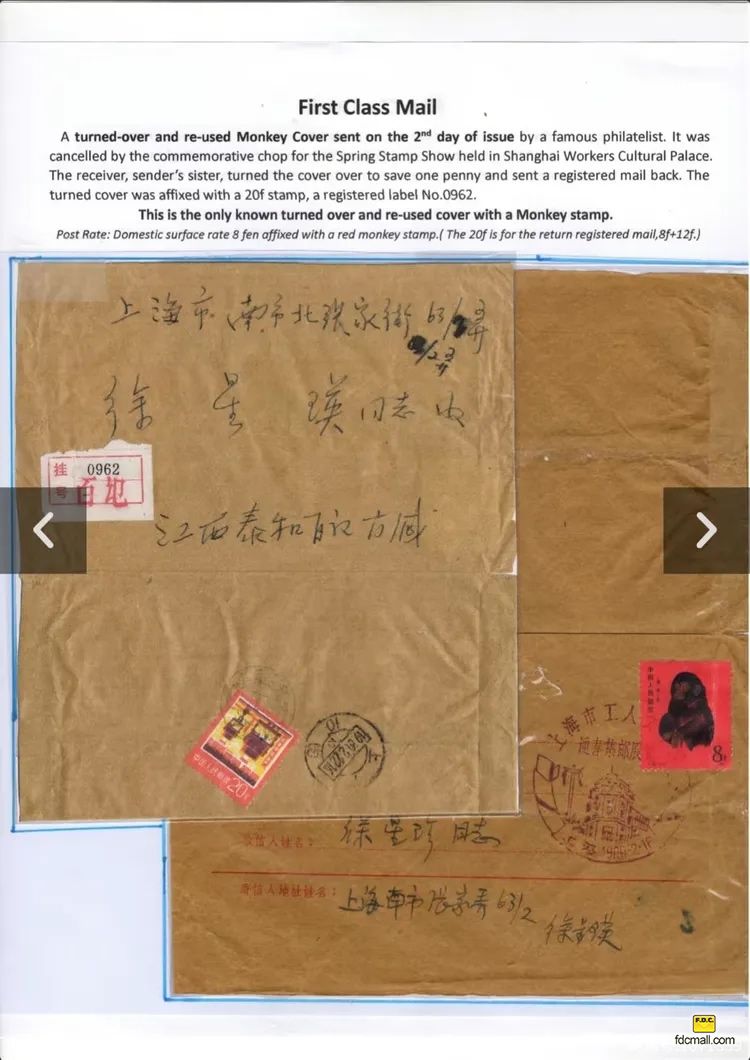 First Class Mail
A turned-over and re-used Monkey Cover sent on the 2nd day of issue by a famous philatelist. It was
cancelled by the commemorative chop for the Spring Stamp Show held in Shanghai Workers Cultural Palace.
The receiver, sender's sister, turned the cover over to save one penny and sent a registered mail back. The
turned cover was affixed with a 20f stamp, a registered label No.0962.
This is the only known turned over and re-used cover with a Monkey stamp.
Post Rate: Domestic surface rate 8 fen affixed with a red monkey stamp.( The 20f is for the return registered mail,8f+12f.)
上海市 南市北张家街 63/2弄
徐 星 瑛 同志 收
挂号 0962
江西泰和
中国人民邮政 20
中国人民邮政
8
上海市工人
迎春集邮展
收信人姓名: 徐星珍 同志
寄信人地址姓名: 上海南市张家弄 63/2
徐星瑛
F.D.C.
fdcmall.com